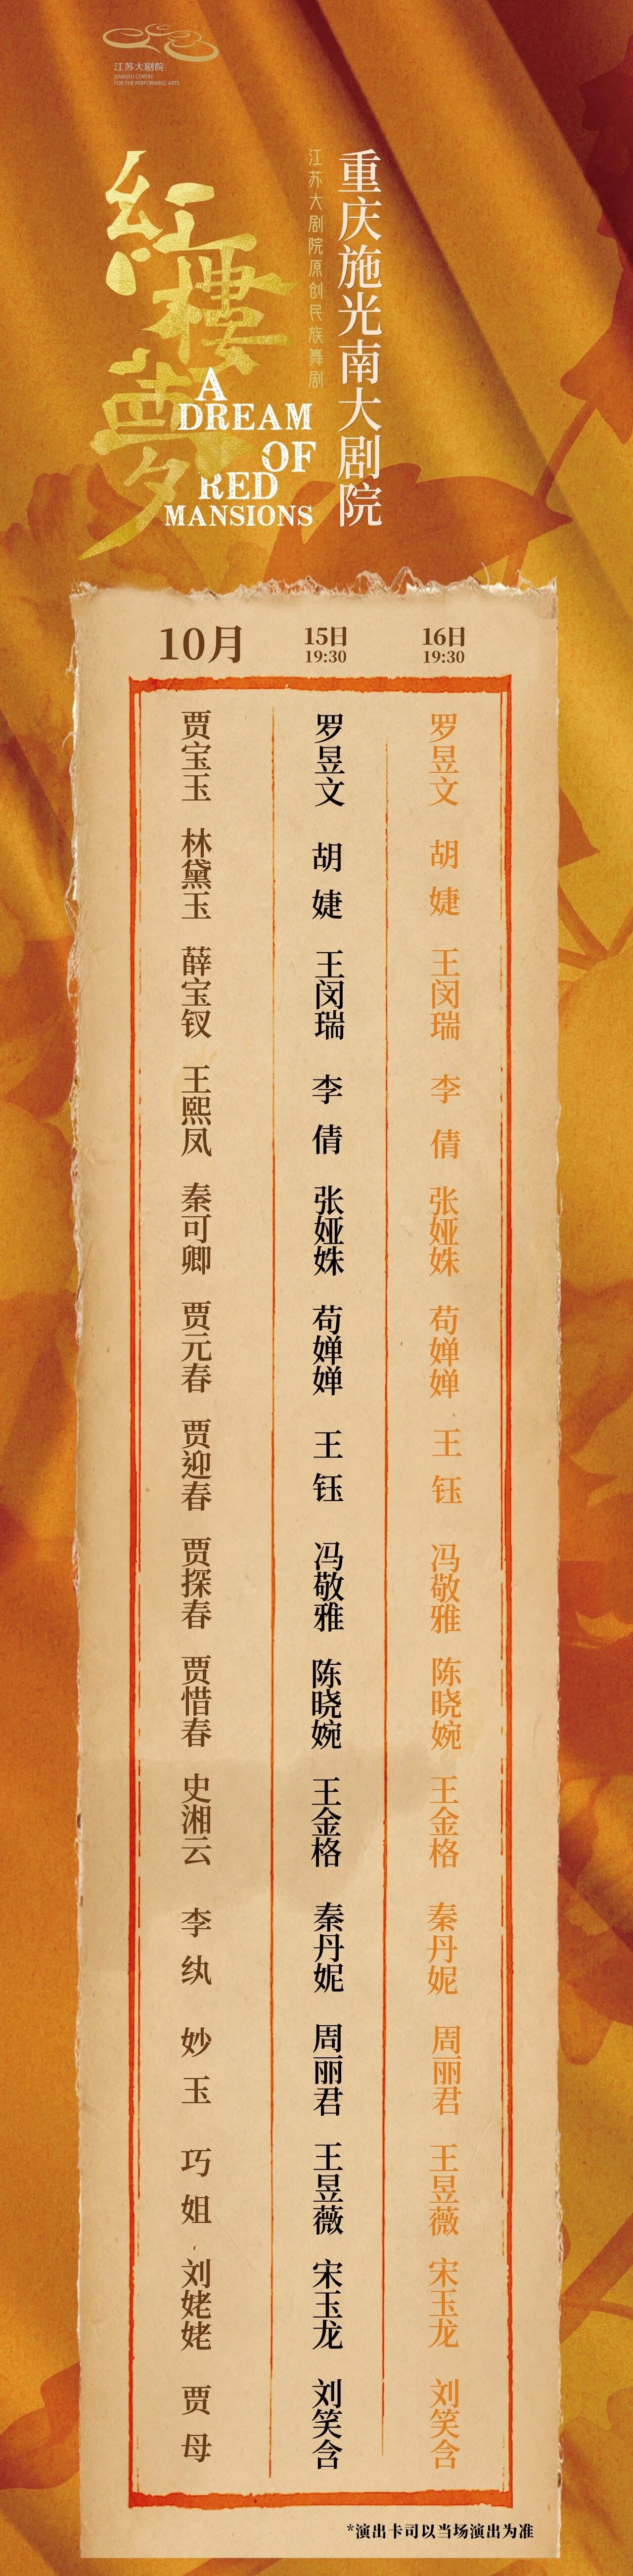 江苏大剧院
JIANGSU CENTRE
FOR THE PERFORMING ARTS
重庆施光南大剧院
江苏大剧院原创民族舞剧
紅樓夢
A
DREAM
OF
RED
MANSIONS
10月 15日 16日
19:30 19:30
贾宝玉 罗昱文 罗昱文
林黛玉 胡婕 胡婕
薛宝钗 王闵瑞 王闵瑞
王熙凤 李倩 李倩
秦可卿 张娅姝 张娅姝
贾元春 苟婵婵 苟婵婵
贾迎春 王钰 王钰
贾探春 冯敬雅 冯敬雅
贾惜春 陈晓婉 陈晓婉
史湘云 王金格 王金格
李纨 秦丹妮 秦丹妮
妙玉 周丽君 周丽君
巧姐 王昱薇 王昱薇
刘姥姥 宋玉龙 宋玉龙
贾母 刘笑含 刘笑含
*演出卡司以当场演出为准